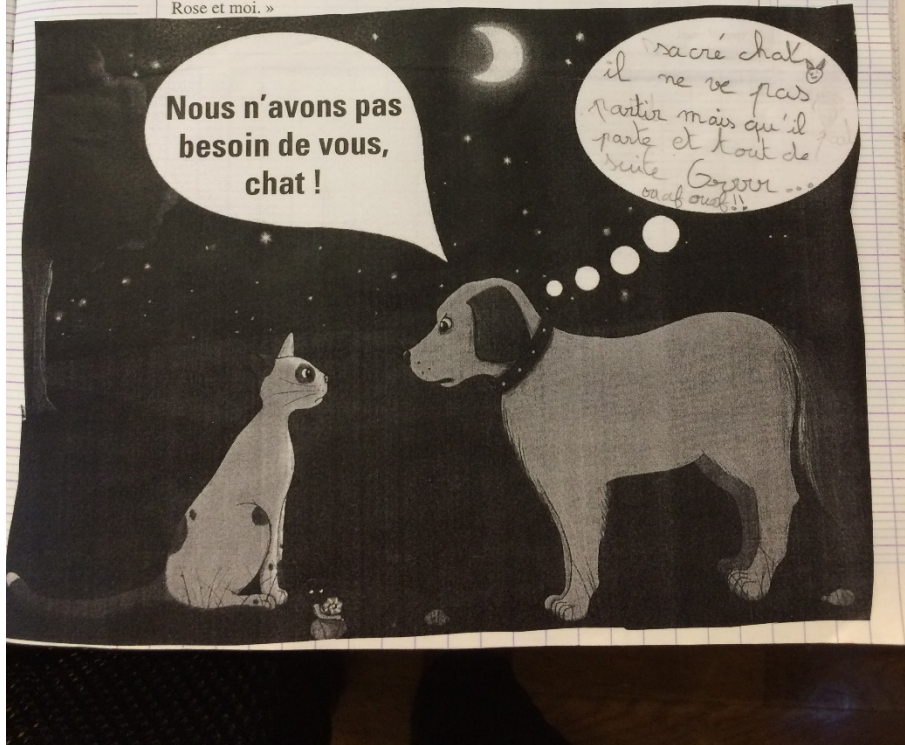 Rose et moi. »
Nous n'avons pas
besoin de vous,
chat !
sacré chat
il ne ve pas
partir mais qu'il
parte et tout de
suite Grrrr...
ouaf ouaf!!